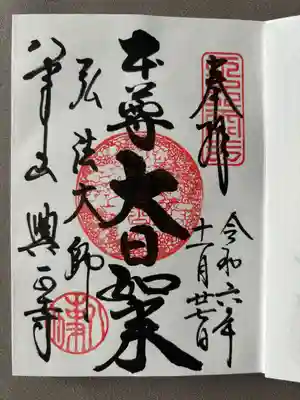 奉拝
令和六年
十一月廿七日
本尊
大日如来
弘法大師
八事山 興正寺